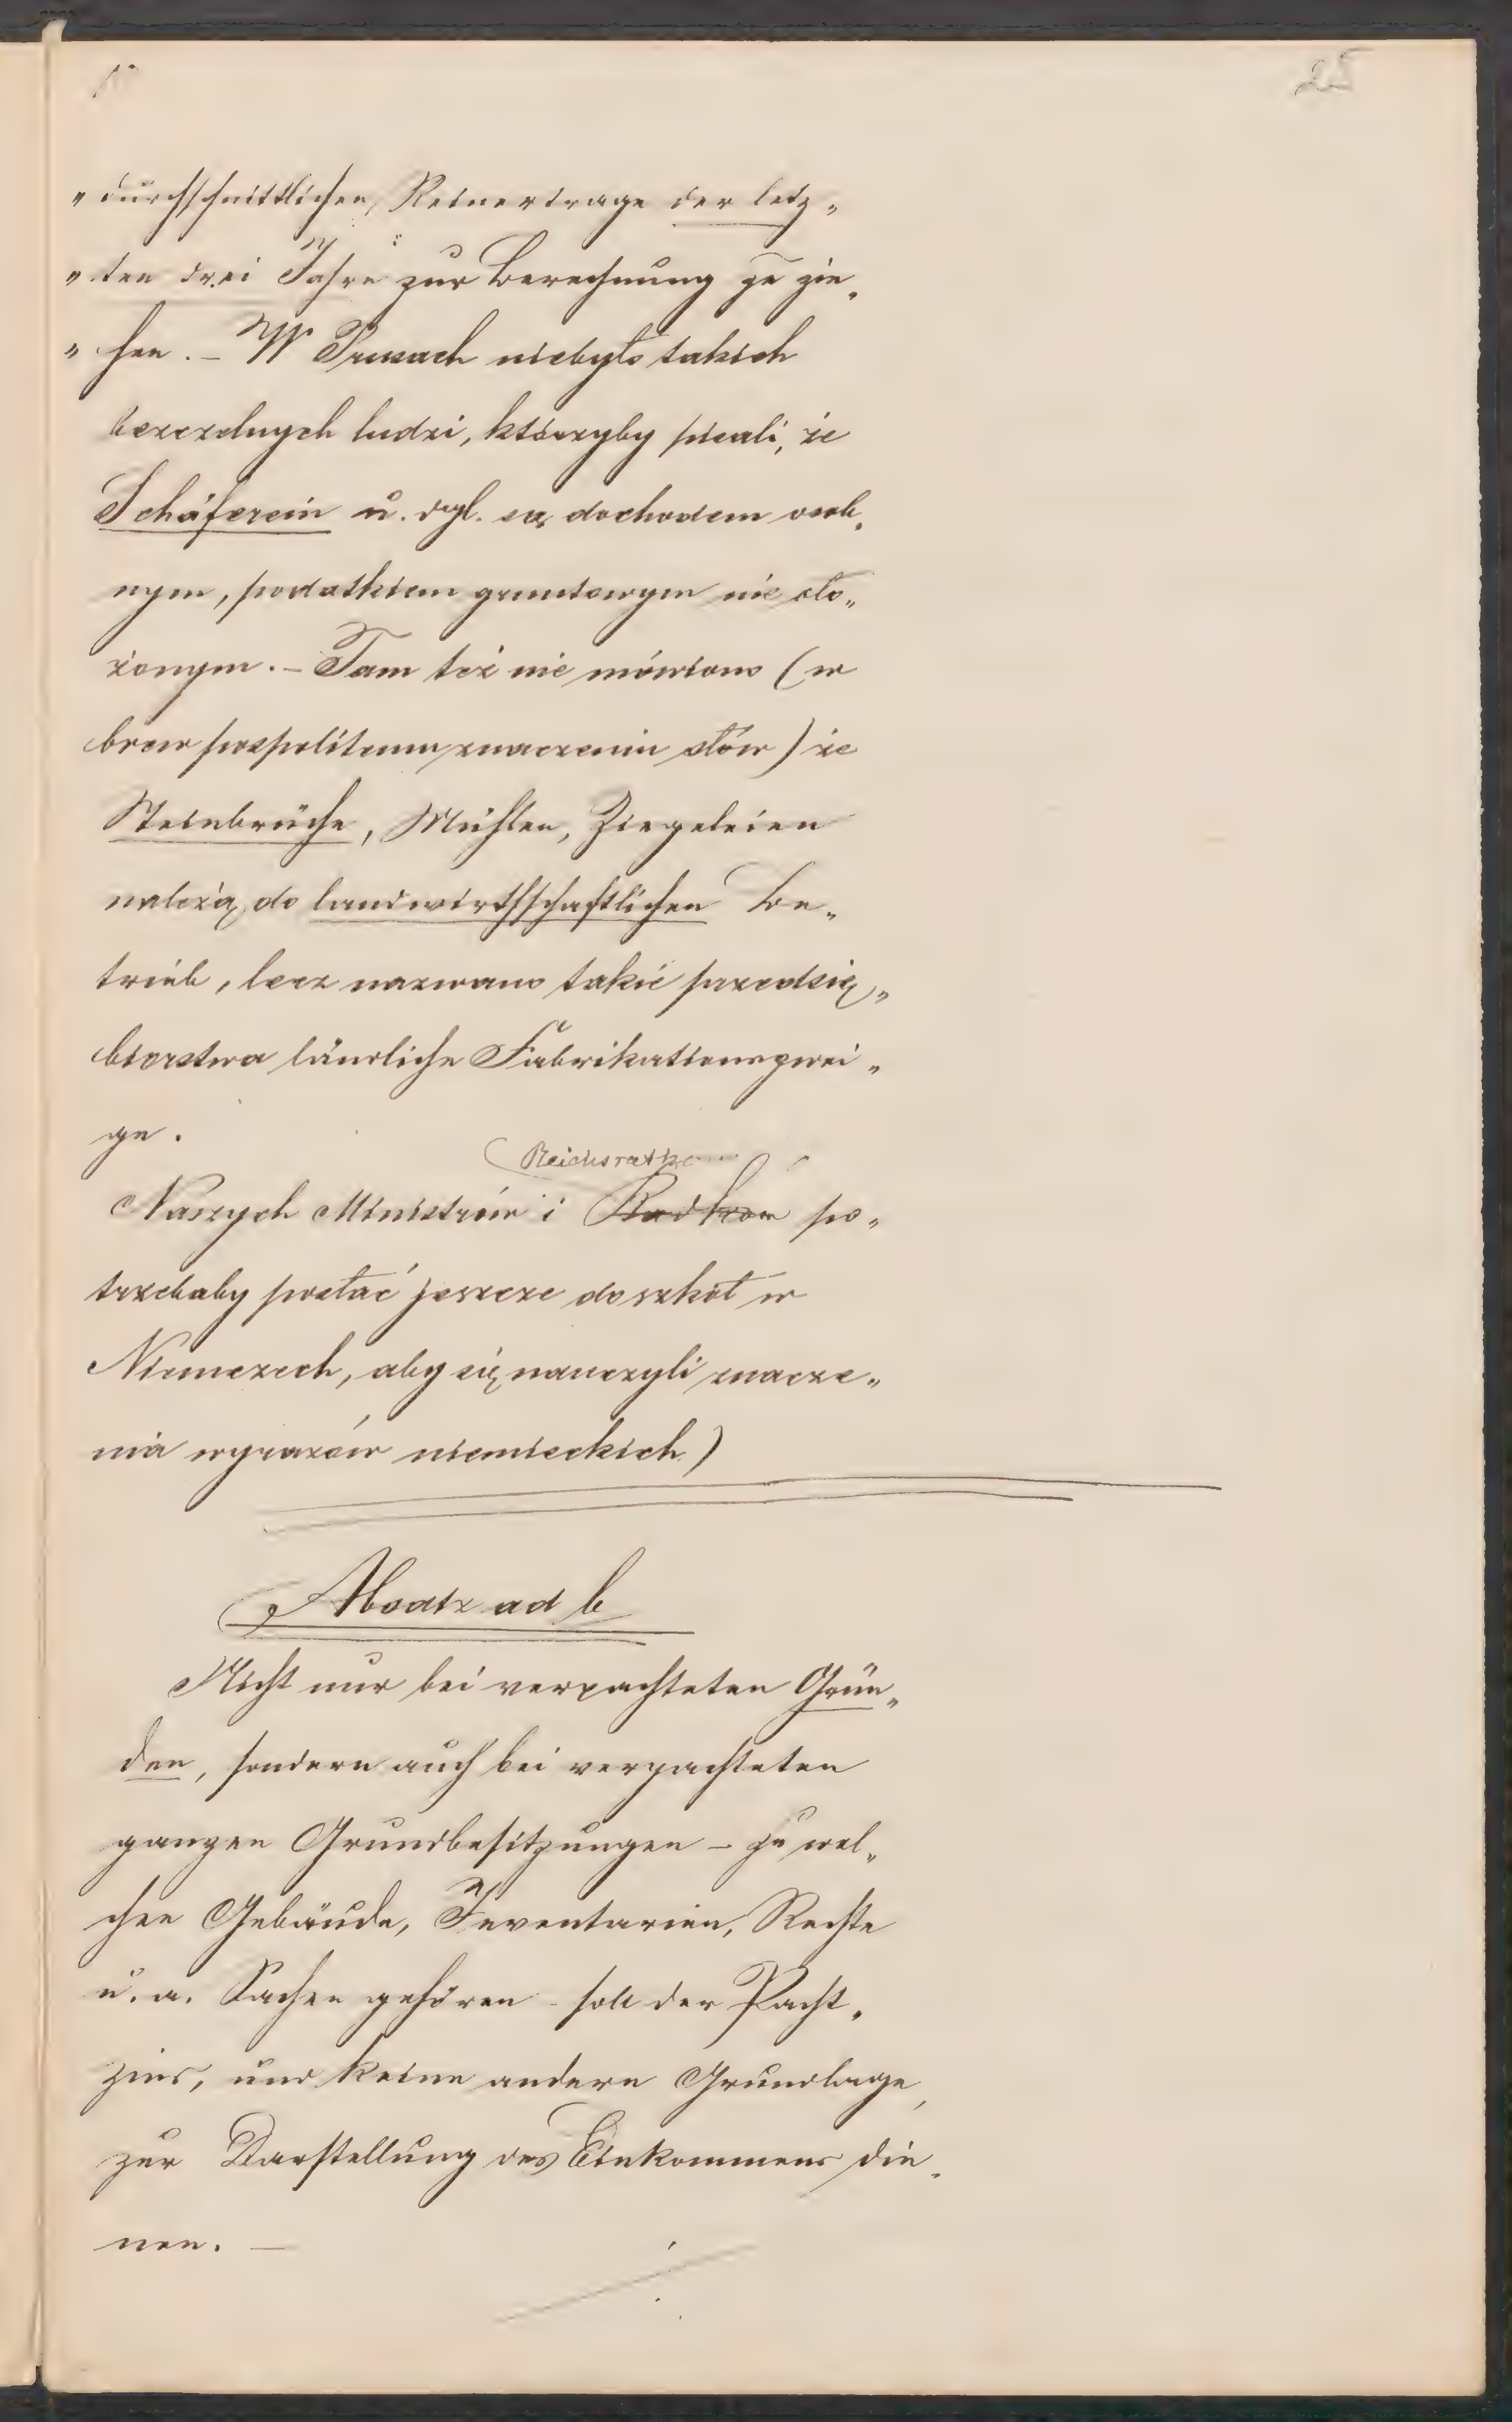 25
„durchschnittlichen Reinertrage der letz„
„ten drei Jahre zur Berechnung zu zie„
„hen. – W Prusach niebyło takich
bezczelnych ludzi, którzyby pisali, że
Schäferein u. dgl. są dochodem osob„
nym, podatkiem gruntowym nie obło„
żonym. – Tam też nie mówiono (w
brew pospolitemu znaczeniu słów) że
Steinbrüche, Mühlen, Ziegeleien
należą do landwirthschaftlichen Be„
trieb, lecz nazwano takie przedsię„
biorstwa ländliche Fabrikationszwei„
ge.
Reichsrathe
Naszych Ministrów i Radków po„
trzebaby posłać jeszcze do szkół w
Niemczech, aby się nauczyli znacze„
nia wyrazów niemieckich)
Absatz ad b
Nicht nur bei verpachteten Grün„
den, sondern auch bei verpachteten
ganzen Grundbesitzungen – zu wel„
chen Gebäude, Inventarien, Rechte
u. a. Sachen gehören – soll der Pacht„
zins, und keine andere Grundlage,
zur Darstellung des Einkommens die„
nen. –